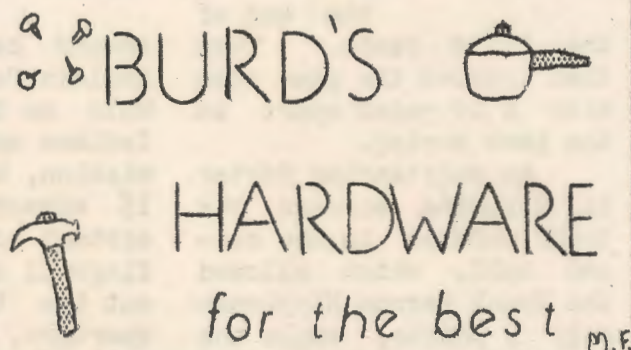 BURD'S
HARDWARE
for the best
M.F.